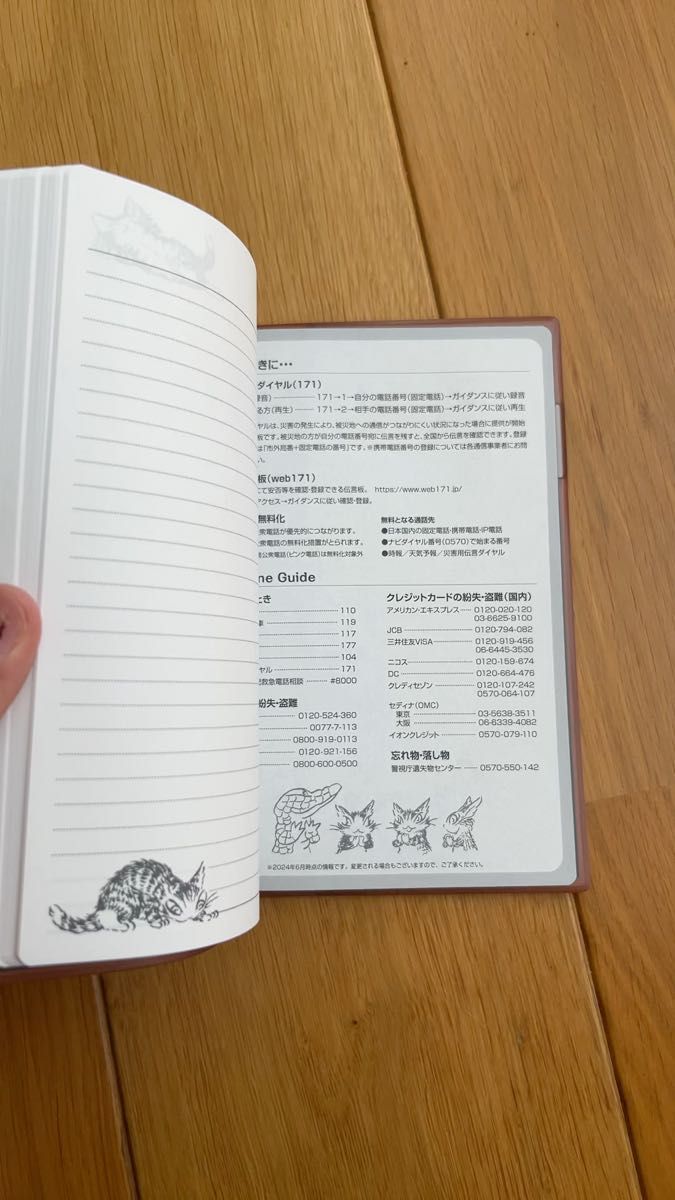 きに…
ダイヤル(171)
録音) 171→1→自分の電話番号(固定電話)→ガイダンスに従い録音
る方(再生) 171→2→相手の電話番号(固定電話)→ガイダンスに従い再生
ヤルは、災害の発生により、被災地への通信がつながりにくい状況になった場合に提供が開始
板です。被災地の方が自分の電話番号宛に伝言を残すと、全国から伝言を確認できます。登録
は「市外局番+固定電話の番号」です。※携帯電話番号の登録については各通信事業者にお問
い。
板(web171)
にて安否等を確認・登録できる伝言板。 https://www.web171.jp/
アクセス→ガイダンスに従い確認・登録。
無料化
衆電話が優先的につながります。
衆電話の無料化措置がとられます。
公衆電話(ピンク電話)は無料化対象外
無料となる通話先
●日本国内の固定電話・携帯電話・IP電話
●ナビダイヤル番号(0570)で始まる番号
●時報/天気予報/災害用伝言ダイヤル
ne Guide
とき
110
車 119
117
177
104
ヤル 171
救急電話相談 #8000
紛失・盗難
0120-524-360
0077-7-113
0800-919-0113
0120-921-156
0800-600-0500
クレジットカードの紛失・盗難(国内)
アメリカン・エキスプレス 0120-020-120
03-6625-9100
JCB 0120-794-082
三井住友VISA 0120-919-456
06-6445-3530
ニコス 0120-159-674
DC 0120-664-476
クレディセゾン 0120-107-242
0570-064-107
セディナ(OMC)
東京 03-5638-3511
大阪 06-6339-4082
イオンクレジット 0570-079-110
忘れ物・落し物
警視庁遺失物センター 0570-550-142
※2024年6月時点の情報です。変更される場合もございますので、ご了承ください。